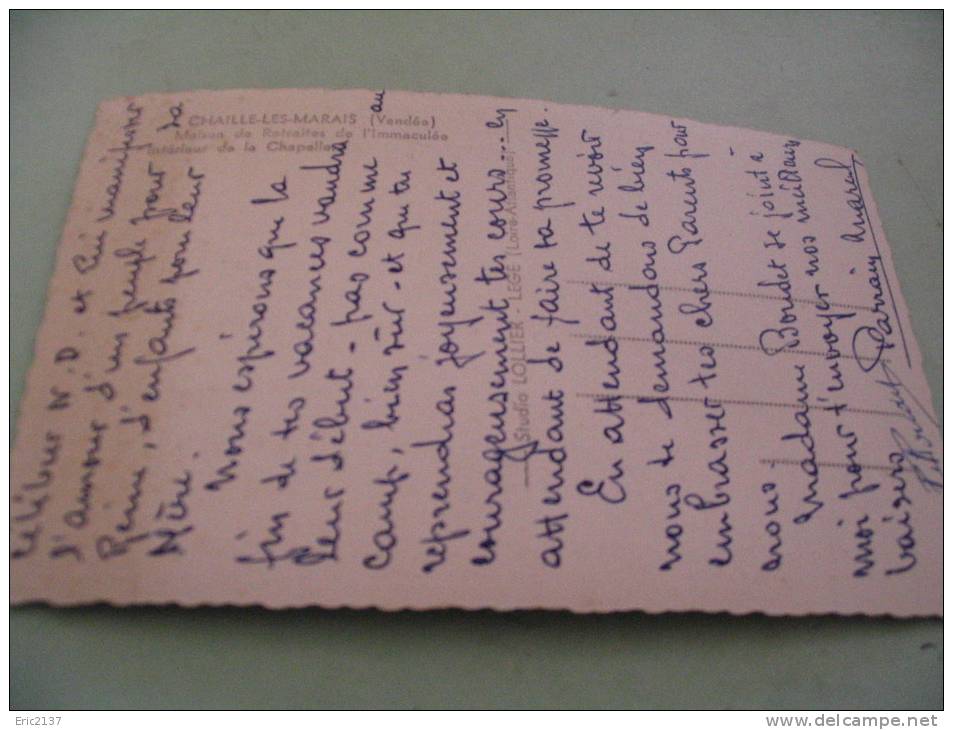 CHAILLE-LES-MARAIS (Vendée)
Maison de Retraites de l'Immaculée
Intérieur de la Chapelle
Studio LOLLIER - LEGÉ (Loire-Atlantique)
célébrer N.D. et Lui manifester
l'amour d'un peuple pour sa
Reine, d'enfants pour leur
Mère.
Nous espérons que la
fin de tes vacances vaudra
leur début - pas comme au
camp, bien sûr - et que tu
reprendras joyeusement et
courageusement tes cours... en
attendant de faire ta promesse.
En attendant de te revoir
nous te demandons de bien
embrasser tes chers Parents pour
nous.
Madame Boridet se joint à
moi pour t'envoyer nos meilleurs
baisers. Parrain
Eric2137
www.delcampe.net